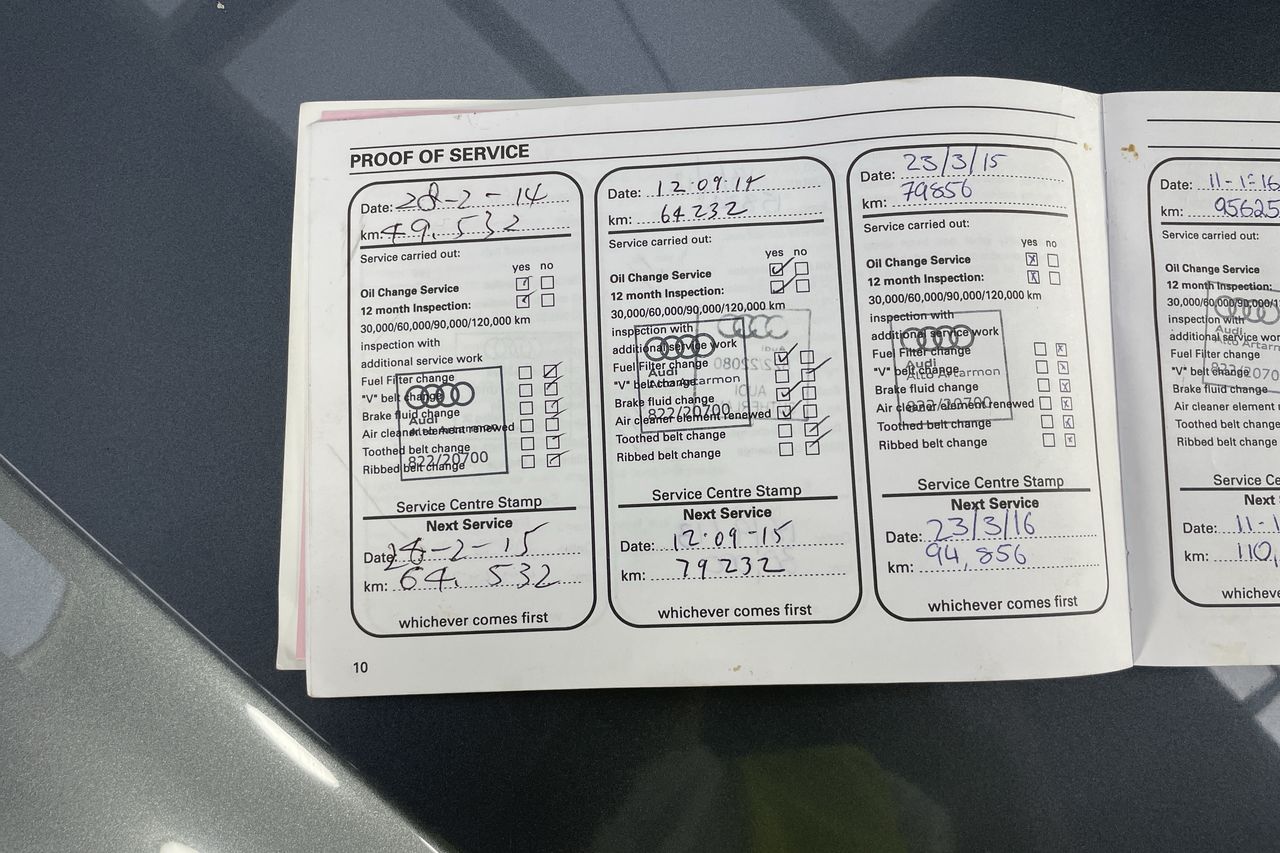 PROOF OF SERVICE
Date: 28-2-14
km: 49.532
Service carried out:
yes no
Oil Change Service
12 month Inspection:
30,000/60,000/90,000/120,000 km
inspection with
additional service work
Fuel Filter change
"V" belt change
Brake fluid change
Audi
Air cleaner element renewed
Toothed belt change
822/20700
Ribbed belt change
Service Centre Stamp
Next Service
Date: 28-2-15
km: 64.532
whichever comes first
10
Date: 12.09.14
km: 64232
Service carried out:
yes no
Oil Change Service
12 month Inspection:
30,000/60,000/90,000/120,000 km
inspection with
additional service work
Fuel Filter change
Audi
"V" belt change
Alto Artarmon
Brake fluid change
822/20700
Air cleaner element renewed
Toothed belt change
Ribbed belt change
Service Centre Stamp
Next Service
Date: 12.09-15
km: 79232
whichever comes first
Date: 23/3/15
km: 79856
Service carried out:
yes no
Oil Change Service
12 month Inspection:
30,000/60,000/90,000/120,000 km
inspection with
additional service work
Fuel Filter change
Audi
"V" belt change
Alto Artarmon
Brake fluid change
822/20700
Air cleaner element renewed
Toothed belt change
Ribbed belt change
Service Centre Stamp
Next Service
Date: 23/3/16
km: 94,856
whichever comes first
Date: 11-1-16
km: 95625
Service carried out:
Oil Change Service
12 month Inspection:
30,000/60,000/90,000/1
inspection with
Audi
additional service wor
Alto Artarm
Fuel Filter change
822/2070
"V" belt change
Brake fluid change
Air cleaner element
Toothed belt change
Ribbed belt change
Service Ce
Next
Date: 11-1
km: 110,
whicheve